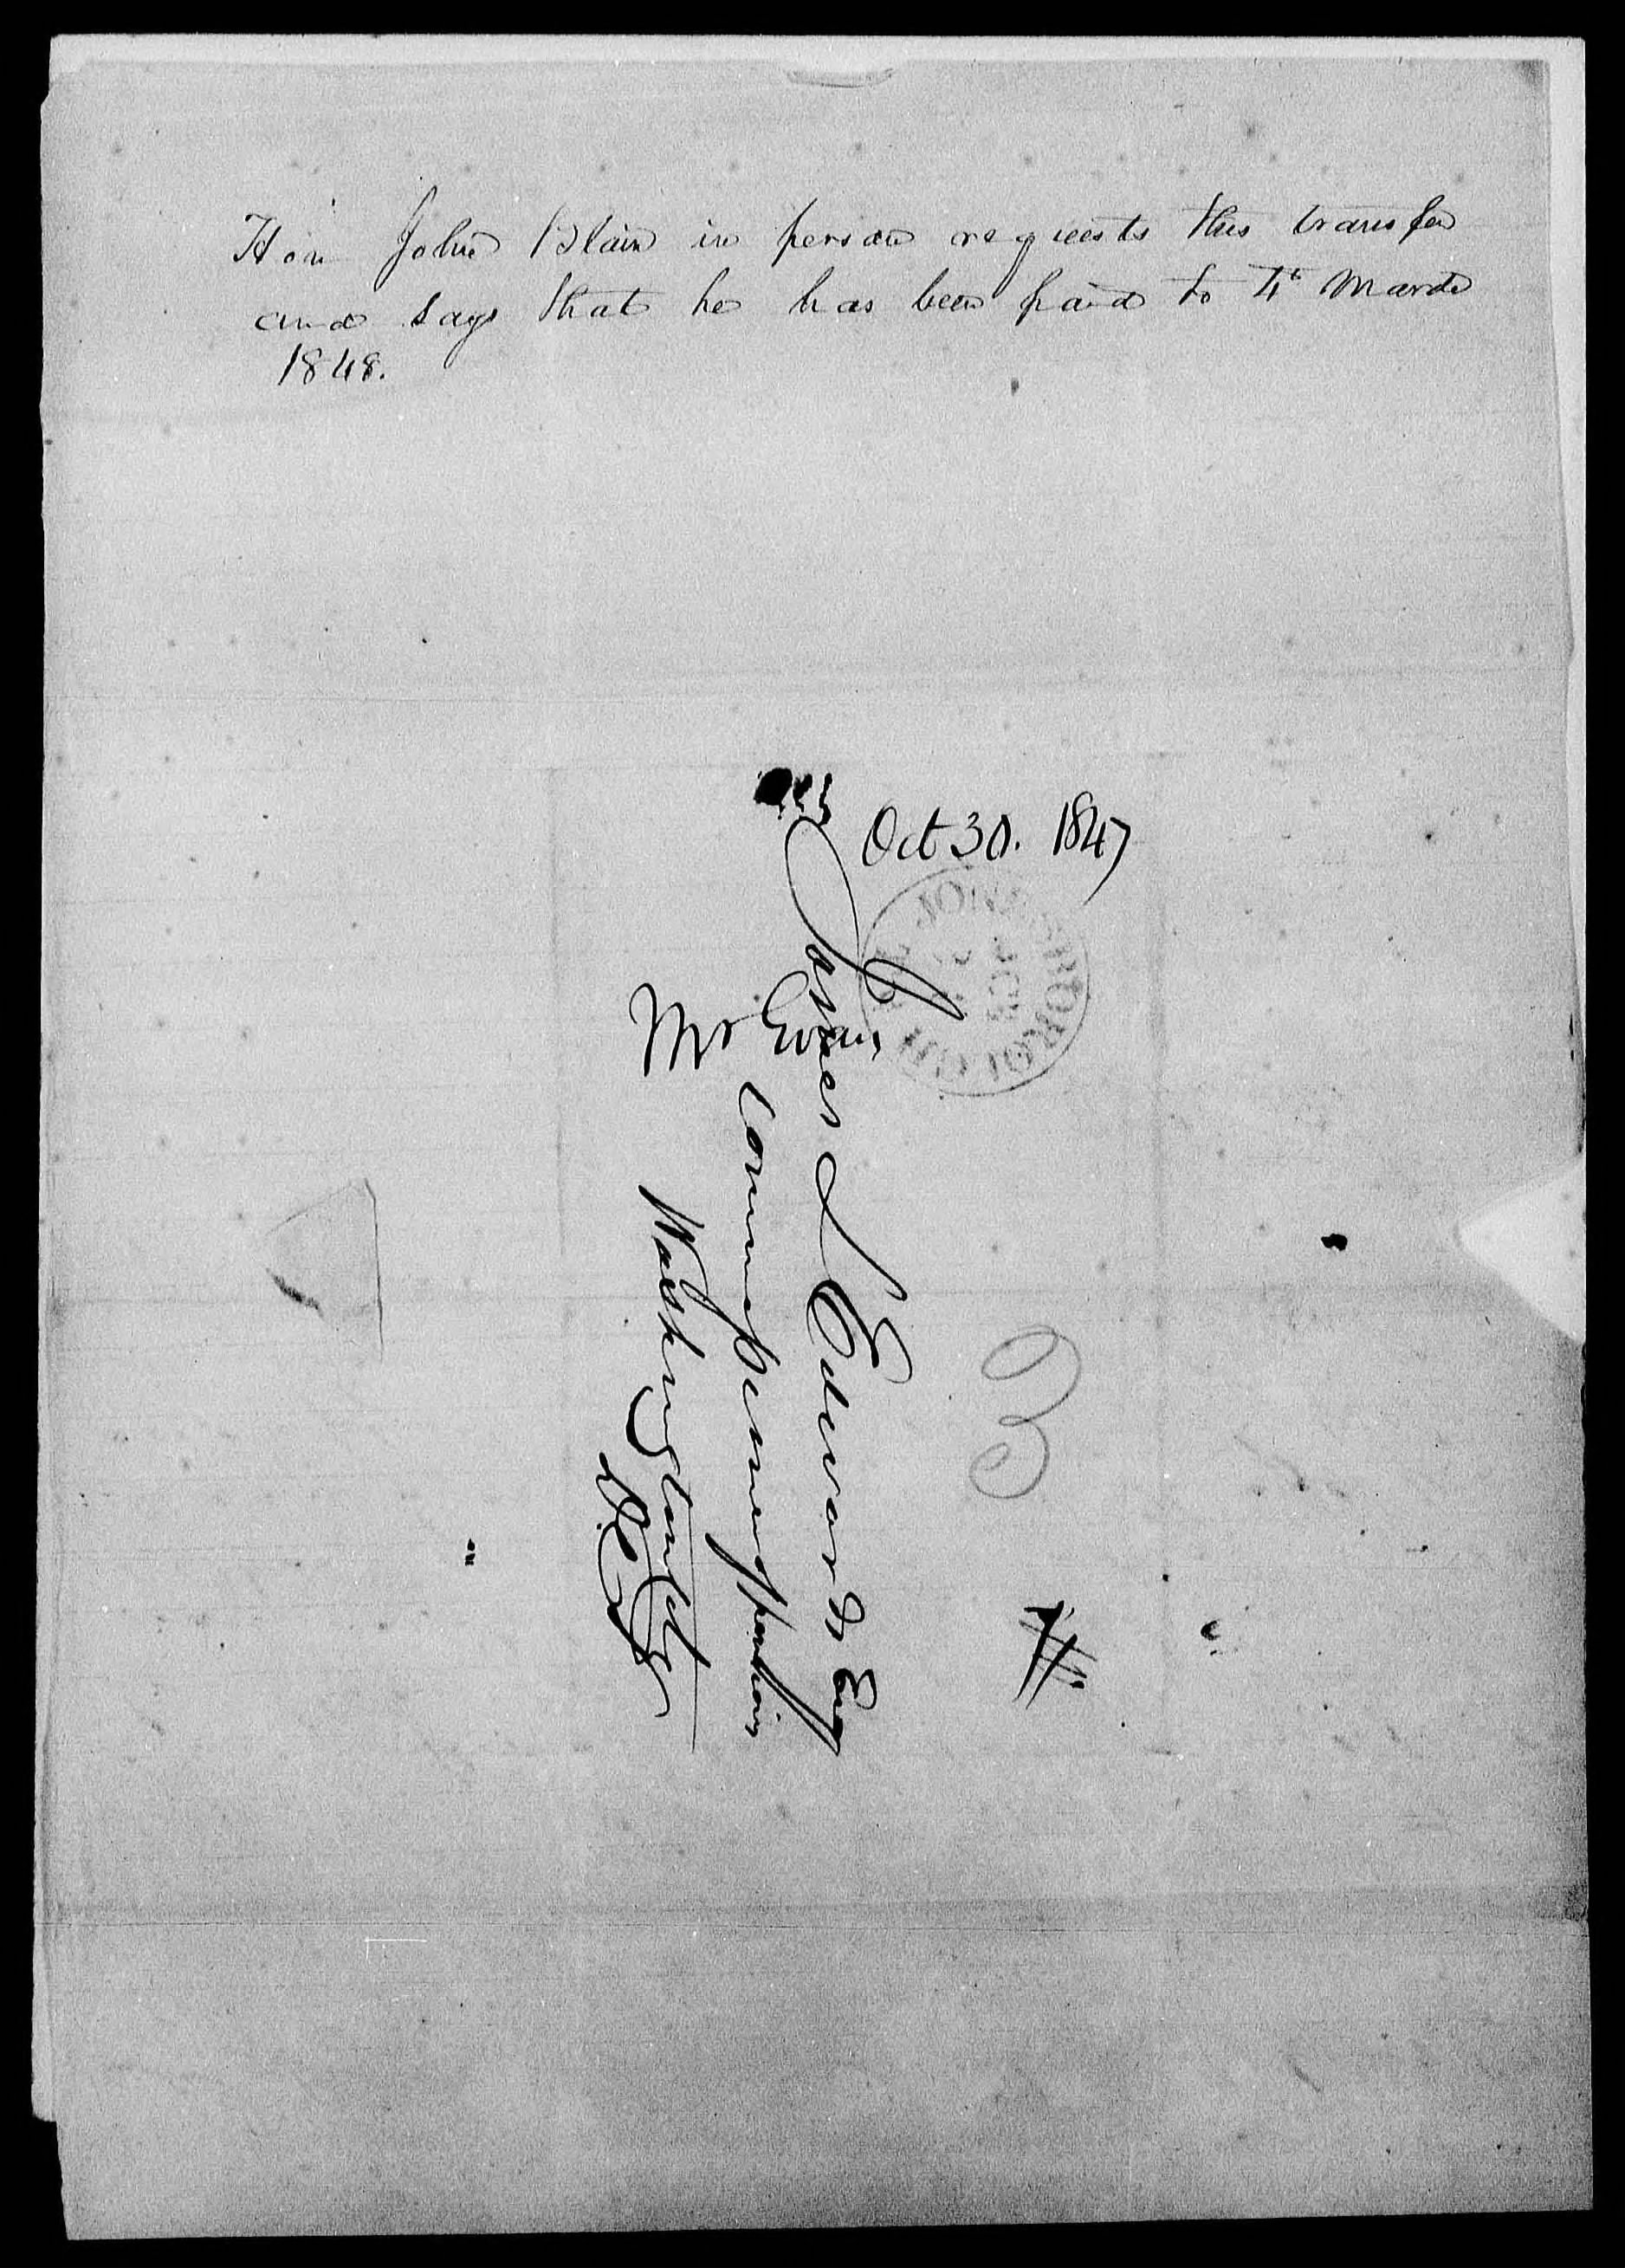 Hon John Blain in person requests this transfer
and says that he has been paid to 4th March
1848.
Oct 30. 1847
JONESBOROUGH
OCT
Mr Evans
James L Edwards Esq
Commissioner of pensions
Washington City
D.C.
3